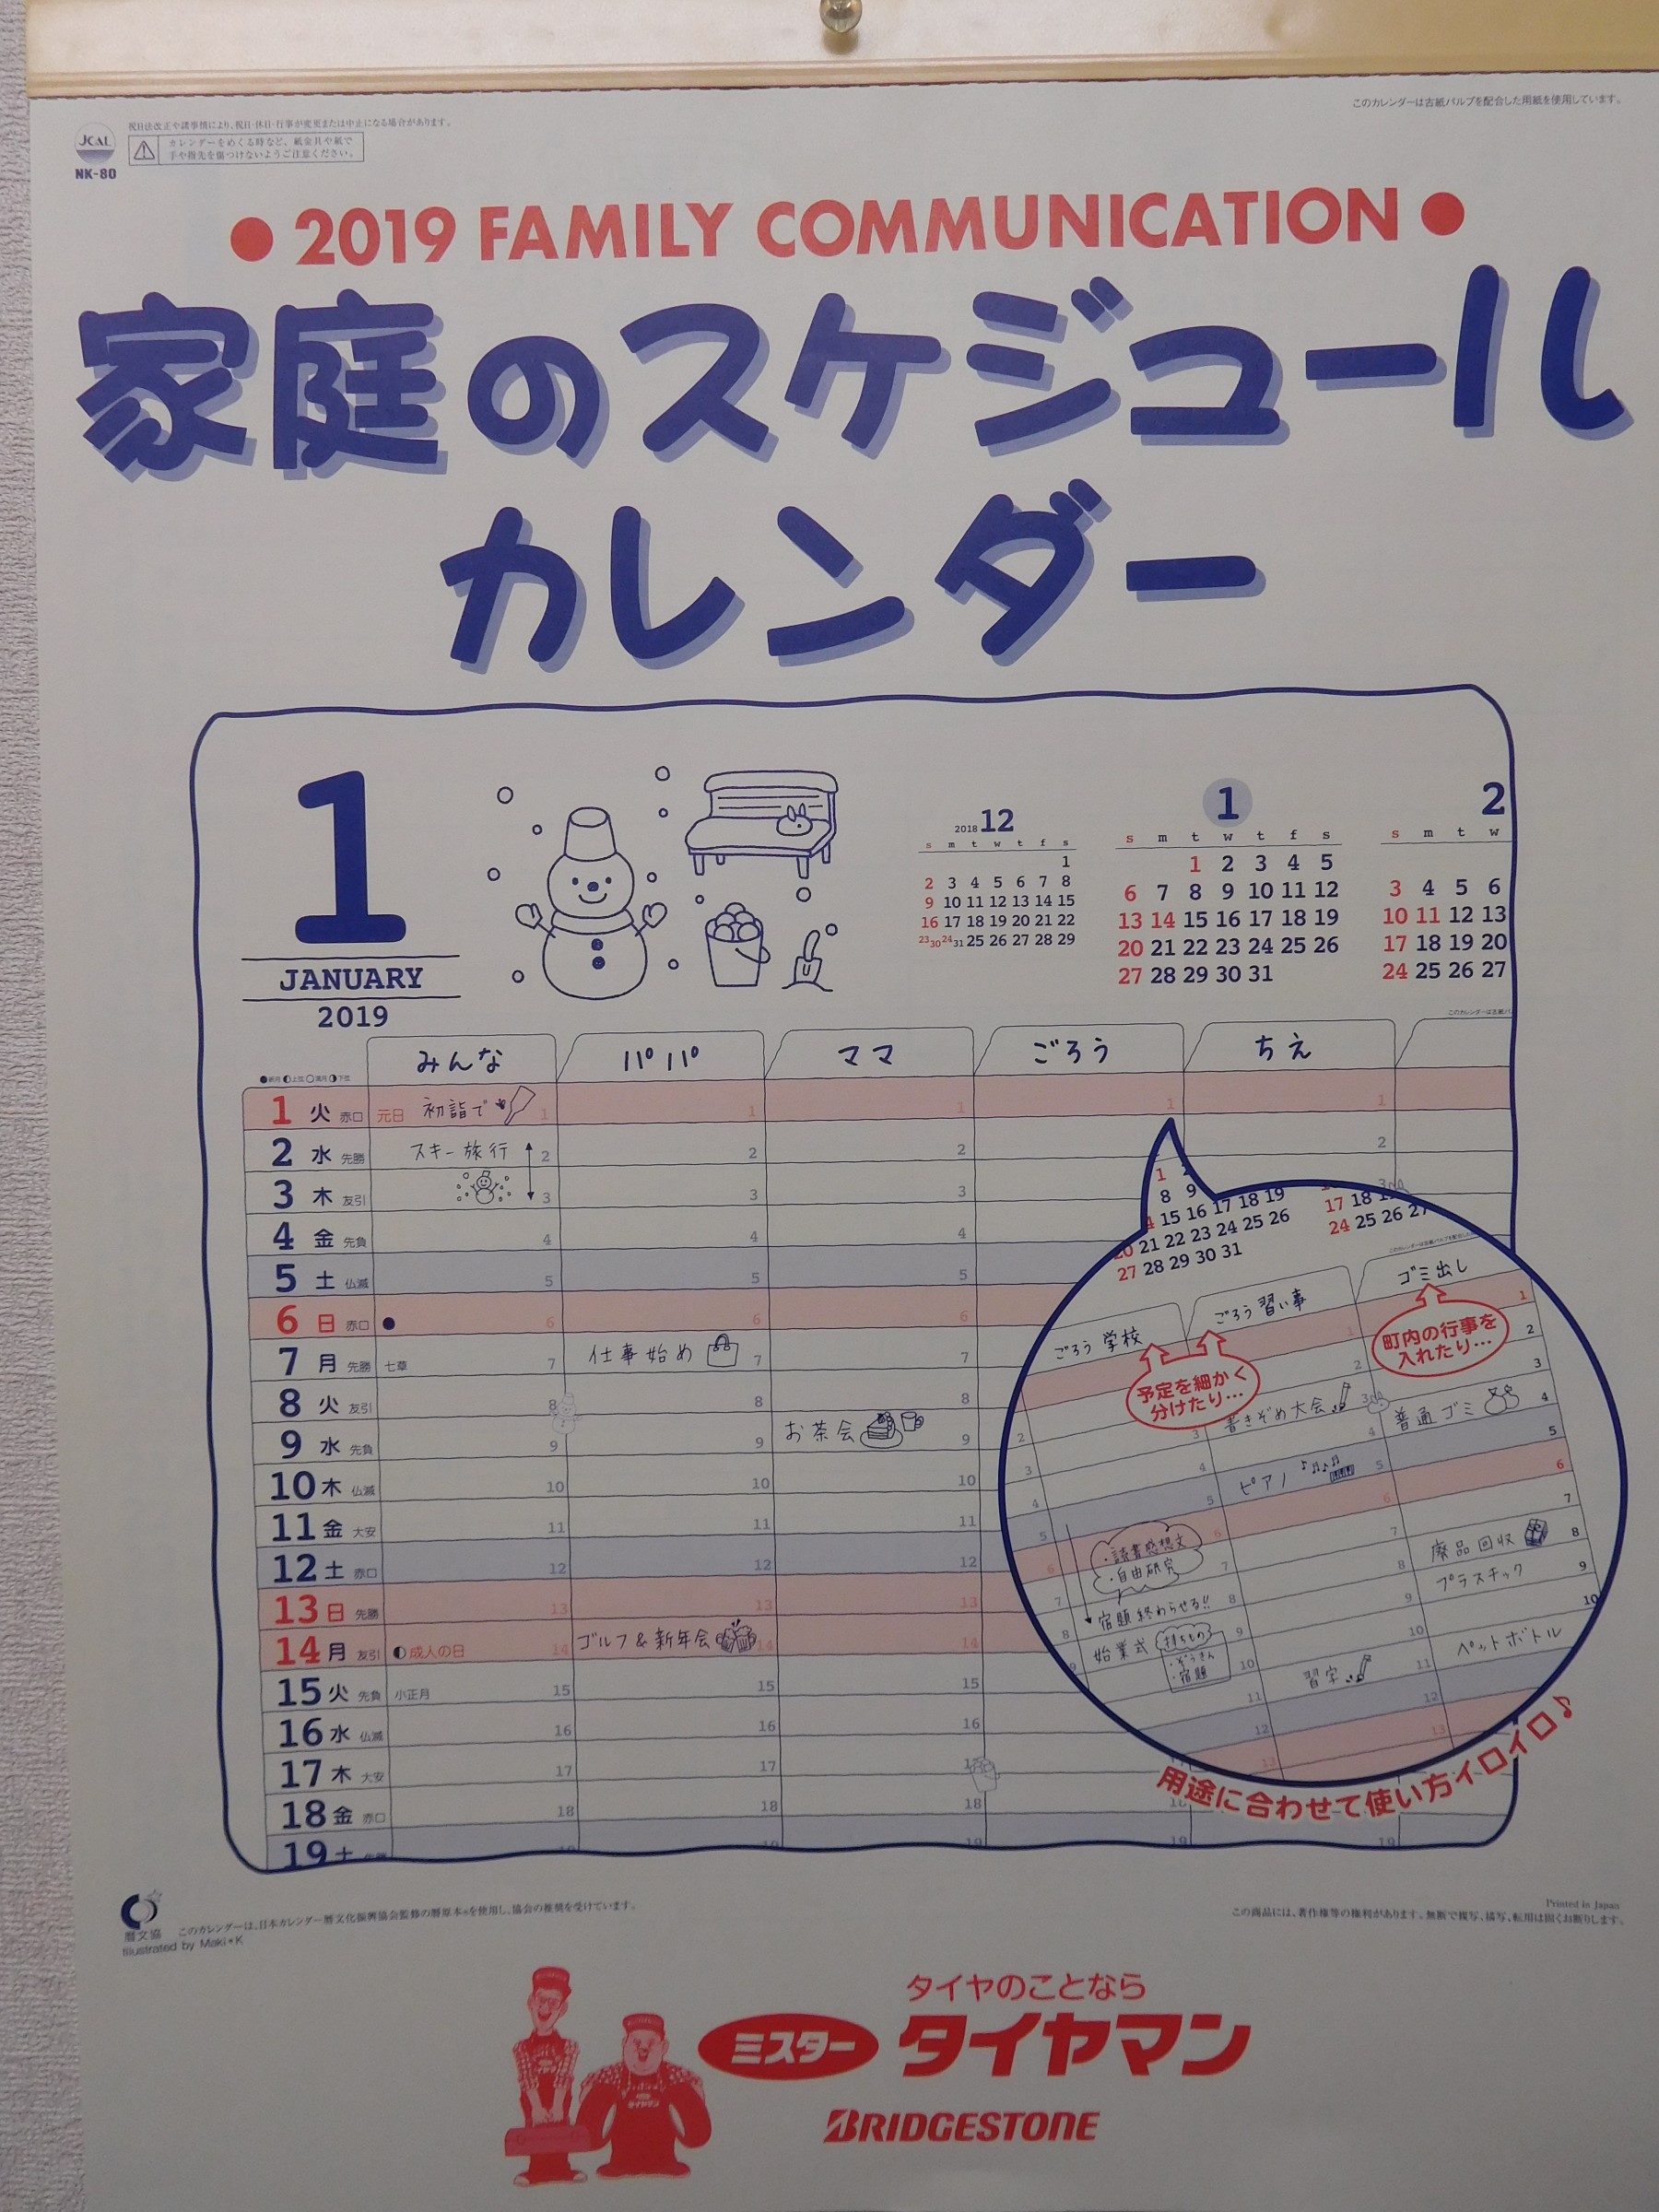 このカレンダーは古紙パルプを配合した用紙を使用しています。
JCAL
NK-80
祝日法改正や諸事情により、祝日・休日・行事が変更または中止になる場合があります。
カレンダーをめくる時など、紙金具や紙で
手や指先を傷つけないようご注意ください。
● 2019 FAMILY COMMUNICATION ●
家庭のスケジュール
カレンダー
1
JANUARY
2019
2018 12
s m t w t f s
1
2 3 4 5 6 7 8
9 10 11 12 13 14 15
16 17 18 19 20 21 22
23 30 24 31 25 26 27 28 29
1
s m t w t f s
1 2 3 4 5
6 7 8 9 10 11 12
13 14 15 16 17 18 19
20 21 22 23 24 25 26
27 28 29 30 31
2
s m t w
3 4 5 6
10 11 12 13
17 18 19 20
24 25 26 27
●新月 ◐上弦 ○満月 ◑下弦
みんな パパ ママ ごろう ちえ
1 火 赤口 元日 初詣で 1 1 1 1 1
2 水 先勝 スキー旅行 2 2 2 2
3 木 友引 3 3 3
4 金 先負 4 4 4
5 土 仏滅 5 5 5
6 日 赤口 ● 6 6 6
7 月 先勝 七草 7 仕事始め 7 7
8 火 友引 8 8 8
9 水 先負 9 9 お茶会 9
10 木 仏滅 10 10 10
11 金 大安 11 11 11
12 土 赤口 12 12 12
13 日 先勝 13 13 13
14 月 友引 ◐成人の日 14 ゴルフ&新年会 14 14
15 火 先負 小正月 15 15 15
16 水 仏滅 16 16 16
17 木 大安 17 17
18 金 赤口 18 18 18 18
19 土 19 19
1
8 9
15 16 17 18 19
20 21 22 23 24 25 26
27 28 29 30 31
17 18
24 25 26 27
ごろう 学校 ごろう 習い事 ゴミ出し
予定を細かく
分けたり…
町内の行事を
入れたり…
書きぞめ大会
普通ゴミ
ピアノ
・読書感想文
・自由研究
廃品回収
プラスチック
宿題 終わらせる!!
始業式
持ちもの
・ぞうきん
・宿題
習字
ペットボトル
用途に合わせて使い方イロイロ♪
暦文協
このカレンダーは、日本カレンダー暦文化振興協会監修の暦原本®を使用し、協会の推奨を受けています。
Illustrated by Maki*K
Printed in Japan
この商品には、著作権等の権利があります。無断で複写、描写、転用は固くお断りします。
タイヤのことなら
ミスター タイヤマン
BRIDGESTONE